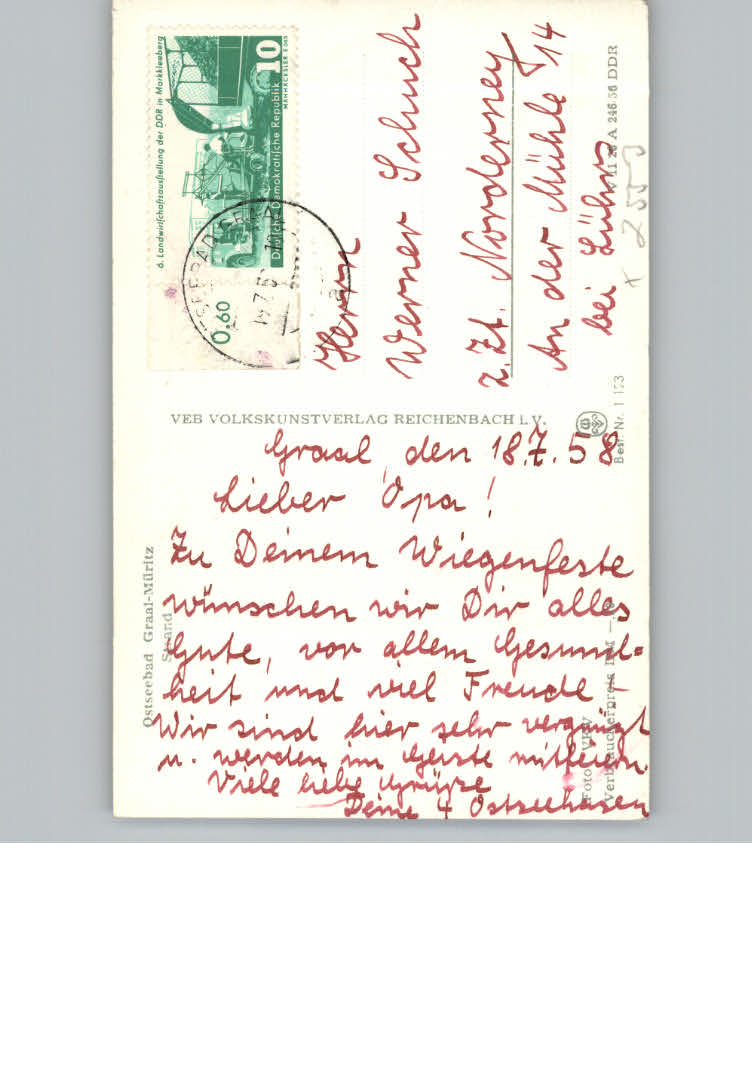 6. Landwirtschaftsausstellung der DDR in Markkleeberg
10
MÄHHÄCKSLER E 065
Deutsche Demokratische Republik
0.60
Herrn
Werner Schuch
z. Zt. Norderney
An der Mühle 14
bei Lührs
A 246 56 DDR
VEB VOLKSKUNSTVERLAG REICHENBACH i. V.
Best. Nr. I 123
Graal, den 18.7.58
Lieber Opa!
Zu Deinem Wiegenfeste
wünschen wir Dir alles
Gute, vor allem Gesund=
heit und viel Freude!
Wir sind hier sehr vergnügt
u. werden im Geiste mitfeiern.
Viele liebe Grüße
Deine 4 Ostseehasen
Ostseebad Graal-Müritz
Strand
Foto: VKV
Verbraucherpreis DM